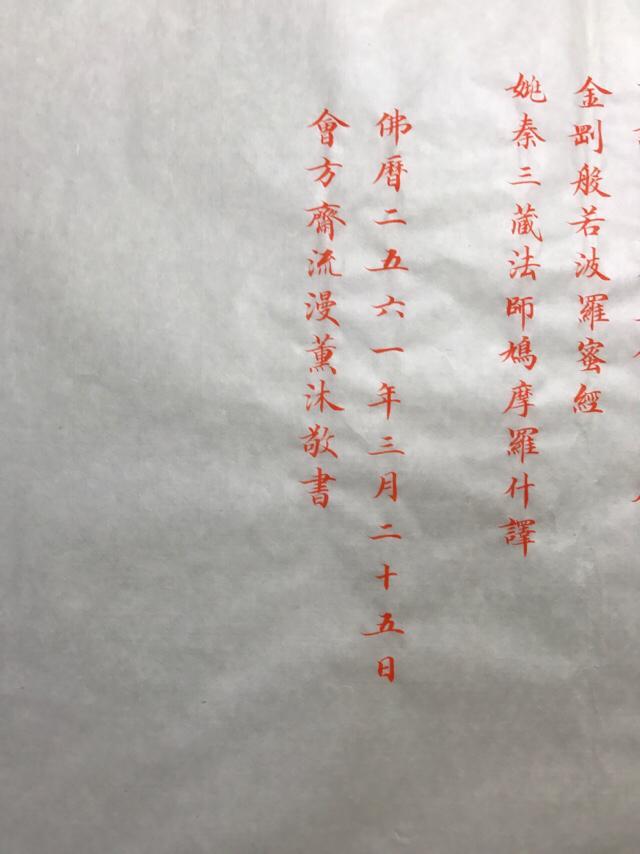 金剛般若波羅蜜經
姚秦三藏法師鳩摩羅什譯
佛曆二五六一年三月二十五日
會方齋流漫薰沐敬書